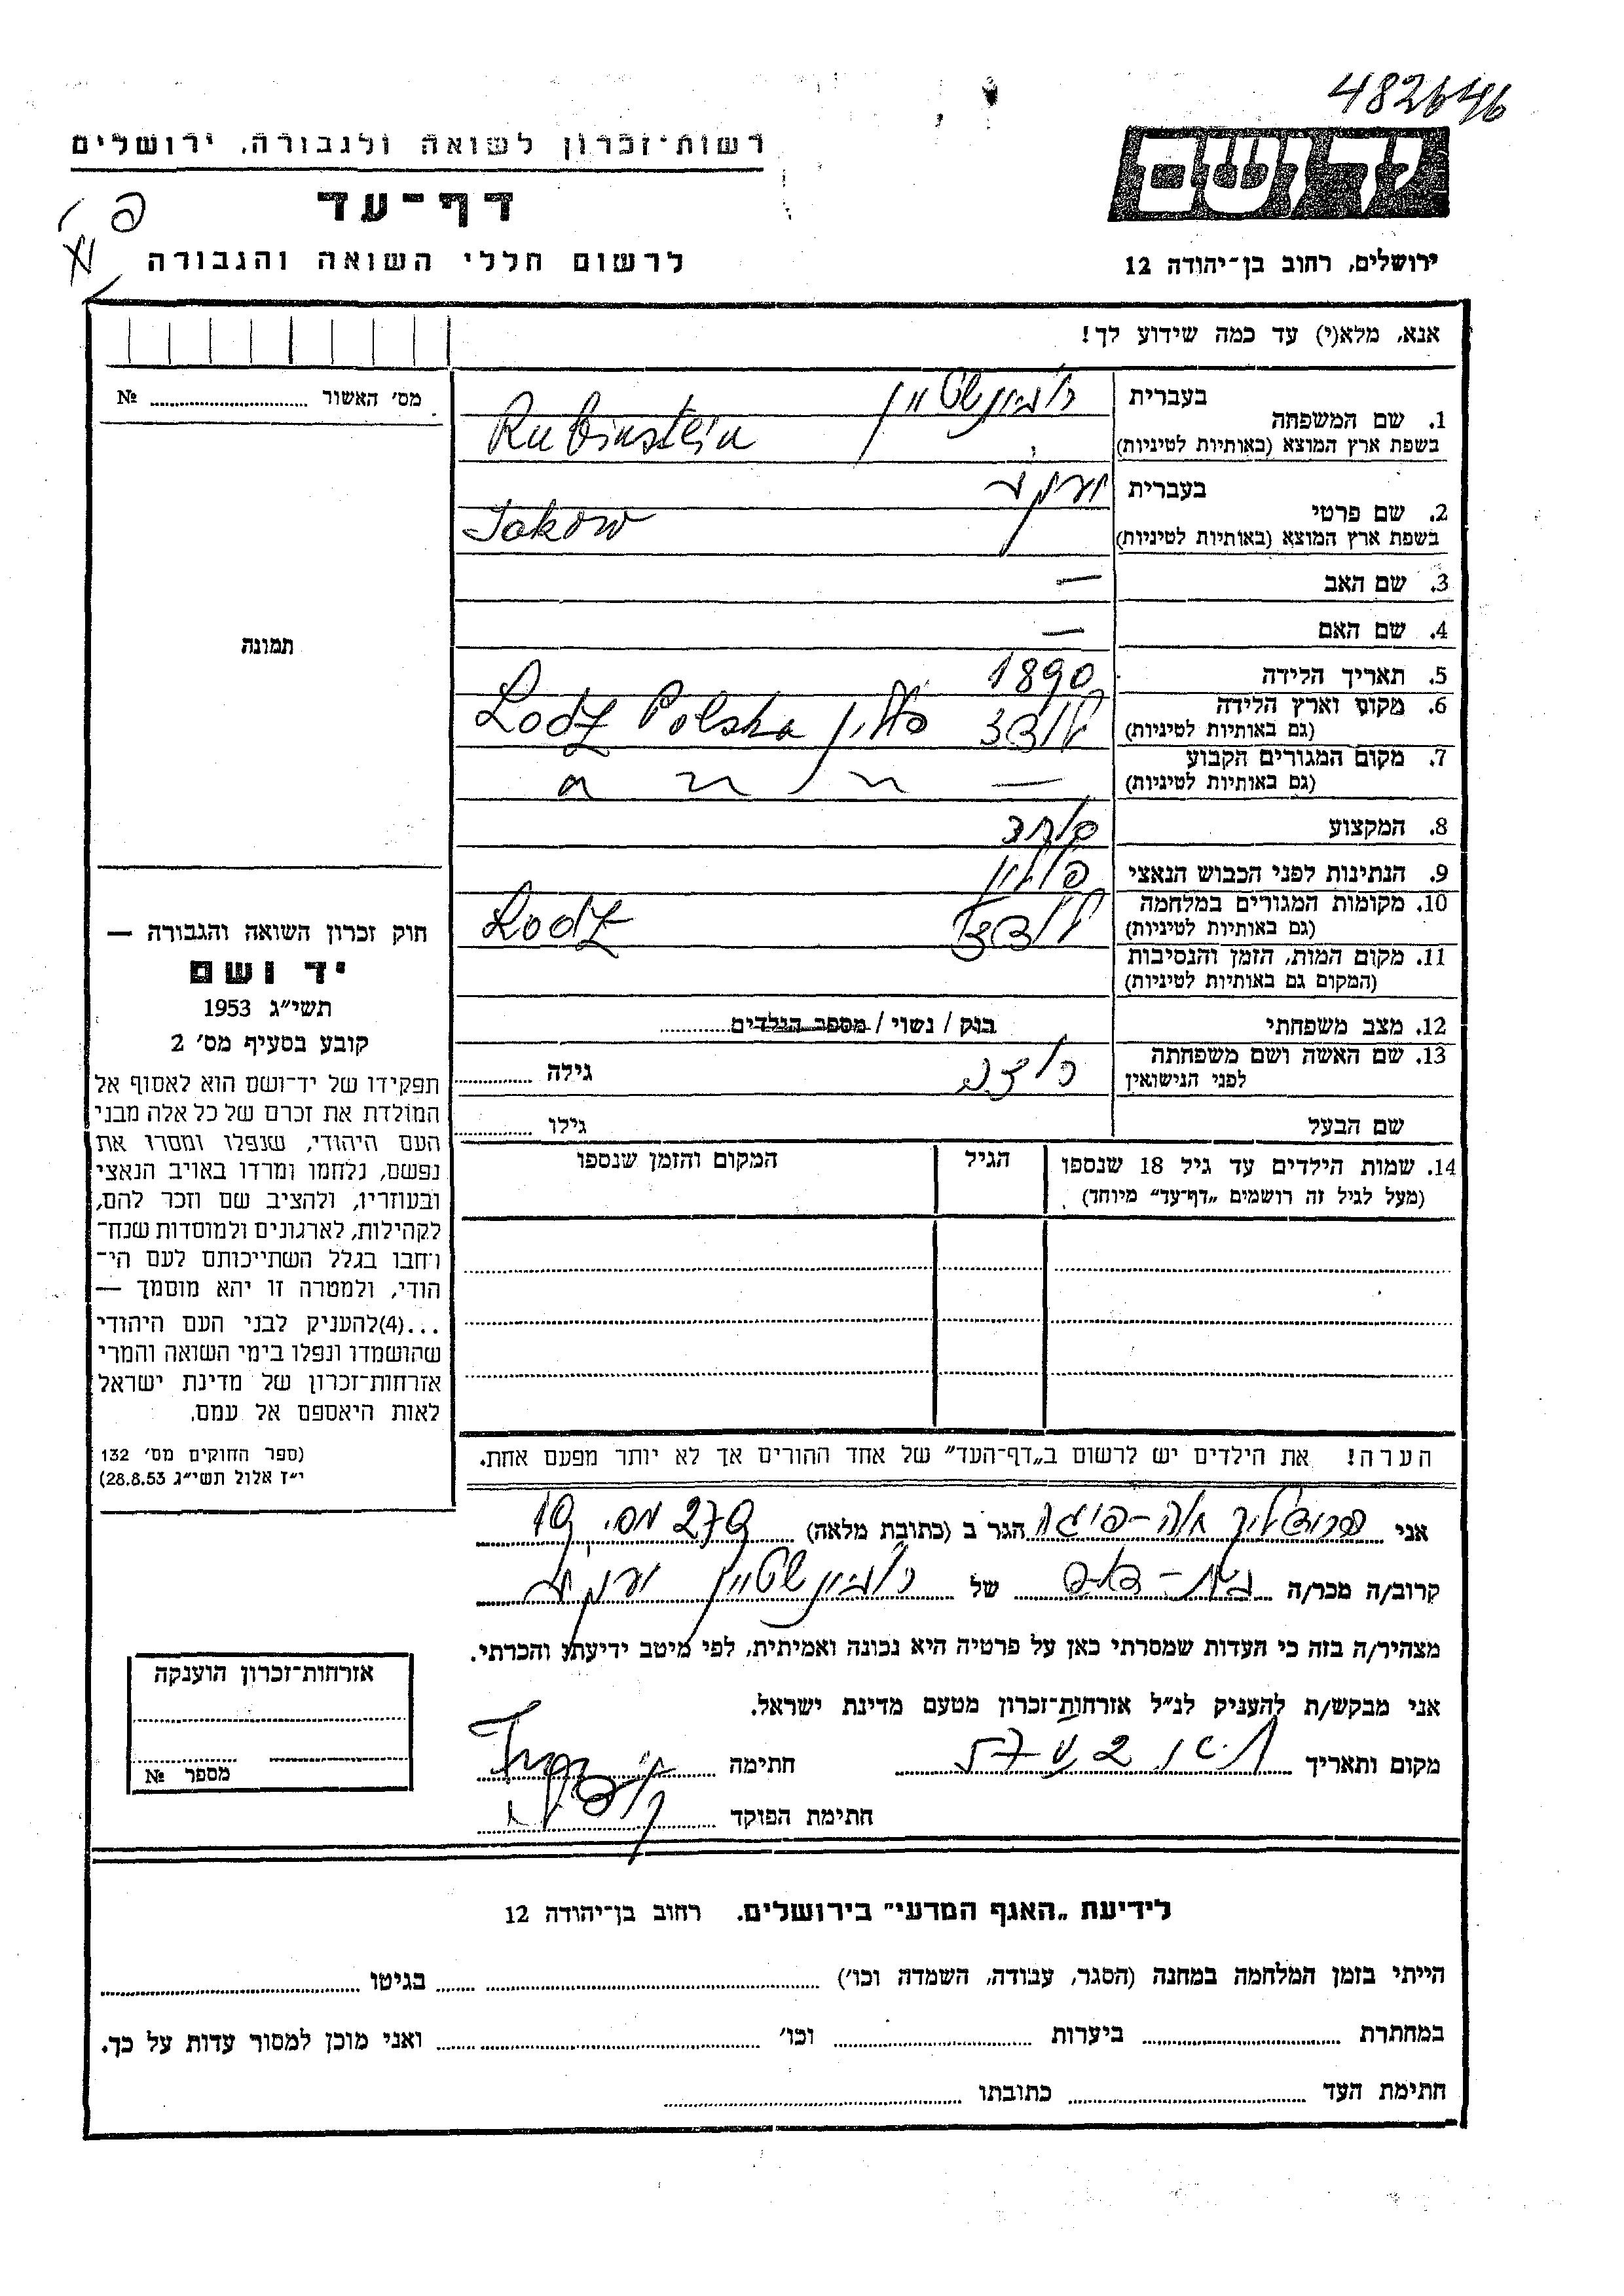 482646
רשות־זכרון לשואה ולגבורה, ירושלים
דף־עד
לרשום חללי השואה והגבורה
ידושם
ירושלים, רחוב בן־יהודה 12
אנא, מלא(י) עד כמה שידוע לך!
מס' האשור № 
1. שם המשפחה
בעברית רובינשטיין
בשפת ארץ המוצא (באותיות לטיניות) Rubinstein
2. שם פרטי
בעברית יעקב
בשפת ארץ המוצא (באותיות לטיניות) Jakow
3. שם האב —
4. שם האם —
5. תאריך הלידה 1890
6. מקום וארץ הלידה לודז פולין Lodz Polska
(גם באותיות לטיניות)
7. מקום המגורים הקבוע —
(גם באותיות לטיניות)
8. המקצוע סוחר
9. הנתינות לפני הכבוש הנאצי פולין
10. מקומות המגורים במלחמה לודז Lodz
(גם באותיות לטיניות)
11. מקום המות, הזמן והנסיבות
(המקום גם באותיות לטיניות)
12. מצב משפחתי רווק / נשוי / מספר הילדים
13. שם האשה ושם משפחתה גילה
לפני הנישואין
שם הבעל גילו
14. שמות הילדים עד גיל 18 שנספו הגיל המקום והזמן שנספו
(מעל לגיל זה רושמים „דף־עד" מיוחד)
תמונה
חוק זכרון השואה והגבורה —
יד ושם
תשי״ג 1953
קובע בסעיף מס' 2
תפקידו של יד־ושם הוא לאסוף אל
המולדת את זכרם של כל אלה מבני
העם היהודי, שנפלו ומסרו את
נפשם, נלחמו ומרדו באויב הנאצי
ובעוזריו, ולהציב שם וזכר להם,
לקהילות, לארגונים ולמוסדות שנח־
רחבו בגלל השתייכותם לעם הי־
הודי, ולמטרה זו יהא מוסמך —
...(4)להעניק לבני העם היהודי
שהושמדו ונפלו בימי השואה והמרי
אזרחות־זכרון של מדינת ישראל
לאות היאספם אל עמם.
(ספר החוקים מס' 132
י״ז אלול תשי״ג 28.8.53)
הערה! את הילדים יש לרשום ב„דף־העד" של אחד ההורים אך לא יותר מפעם אחת.
אני הגר ב (כתובת מלאה)
קרוב/ה מכר/ה של רובינשטיין יעקב
מצהיר/ה בזה כי העדות שמסרתי כאן על פרטיה היא נכונה ואמיתית, לפי מיטב ידיעתי והכרתי.
אני מבקש/ת להעניק לנ״ל אזרחות־זכרון מטעם מדינת ישראל.
מקום ותאריך חתימה
חתימת הפוקד
אזרחות־זכרון הוענקה
מספר №
לידיעת „האגף המדעי" בירושלים. רחוב בן־יהודה 12
הייתי בזמן המלחמה במחנה (הסגר, עבודה, השמדה וכו') בגיטו
במחתרת ביערות וכו' ואני מוכן למסור עדות על כך.
חתימת העד כתובתו